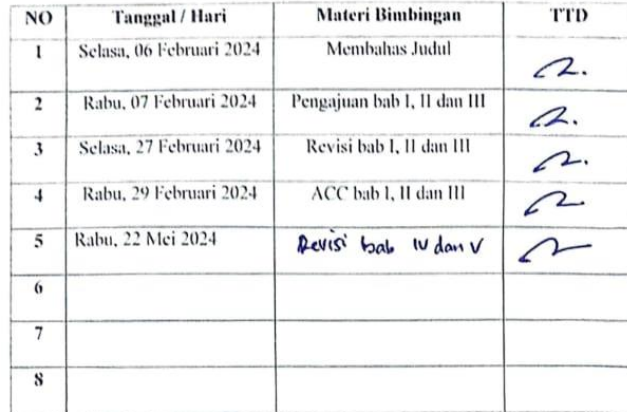 NO Tanggal / Hari Materi Bimbingan TTD
1 Selasa, 06 Februari 2024 Membahas Judul
2 Rabu, 07 Februari 2024 Pengajuan bab I, II dan III
3 Selasa, 27 Februari 2024 Revisi bab I, II dan III
4 Rabu, 29 Februari 2024 ACC bab I, II dan III
5 Rabu, 22 Mei 2024 Revisi bab IV dan V
6
7
8